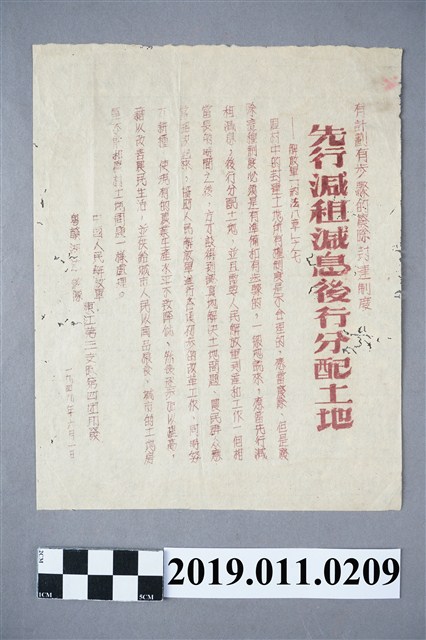 有計劃有步驟的廢除封建制度
先行減租減息後行分配土地
——解放軍一約法八章之七
農村中的封建土地所有權制度是不合理的，應當廢除，但是廢
除這種制度必須是有準備和有步驟的，一般為說來，應當先行減
租減息，後行分配土地，並且需要人民解放軍到達和工作一個相
當長的時間之後，方才談得到認真地解決土地問題。農民群眾應
人民解放軍進行各項初步的改革工作，同時努
力耕種，使現有的農業生產水平不致降低，然後逐步加以提高，
藉以改善農民生活，並供給城市人民以商品糧食。城市的土地房
屋不能和農村土地問題一樣處理。
中國人民解放軍
東江第三支隊第四團
一九四九年六月一日
2CM
1CM
5CM
2019.011.0209